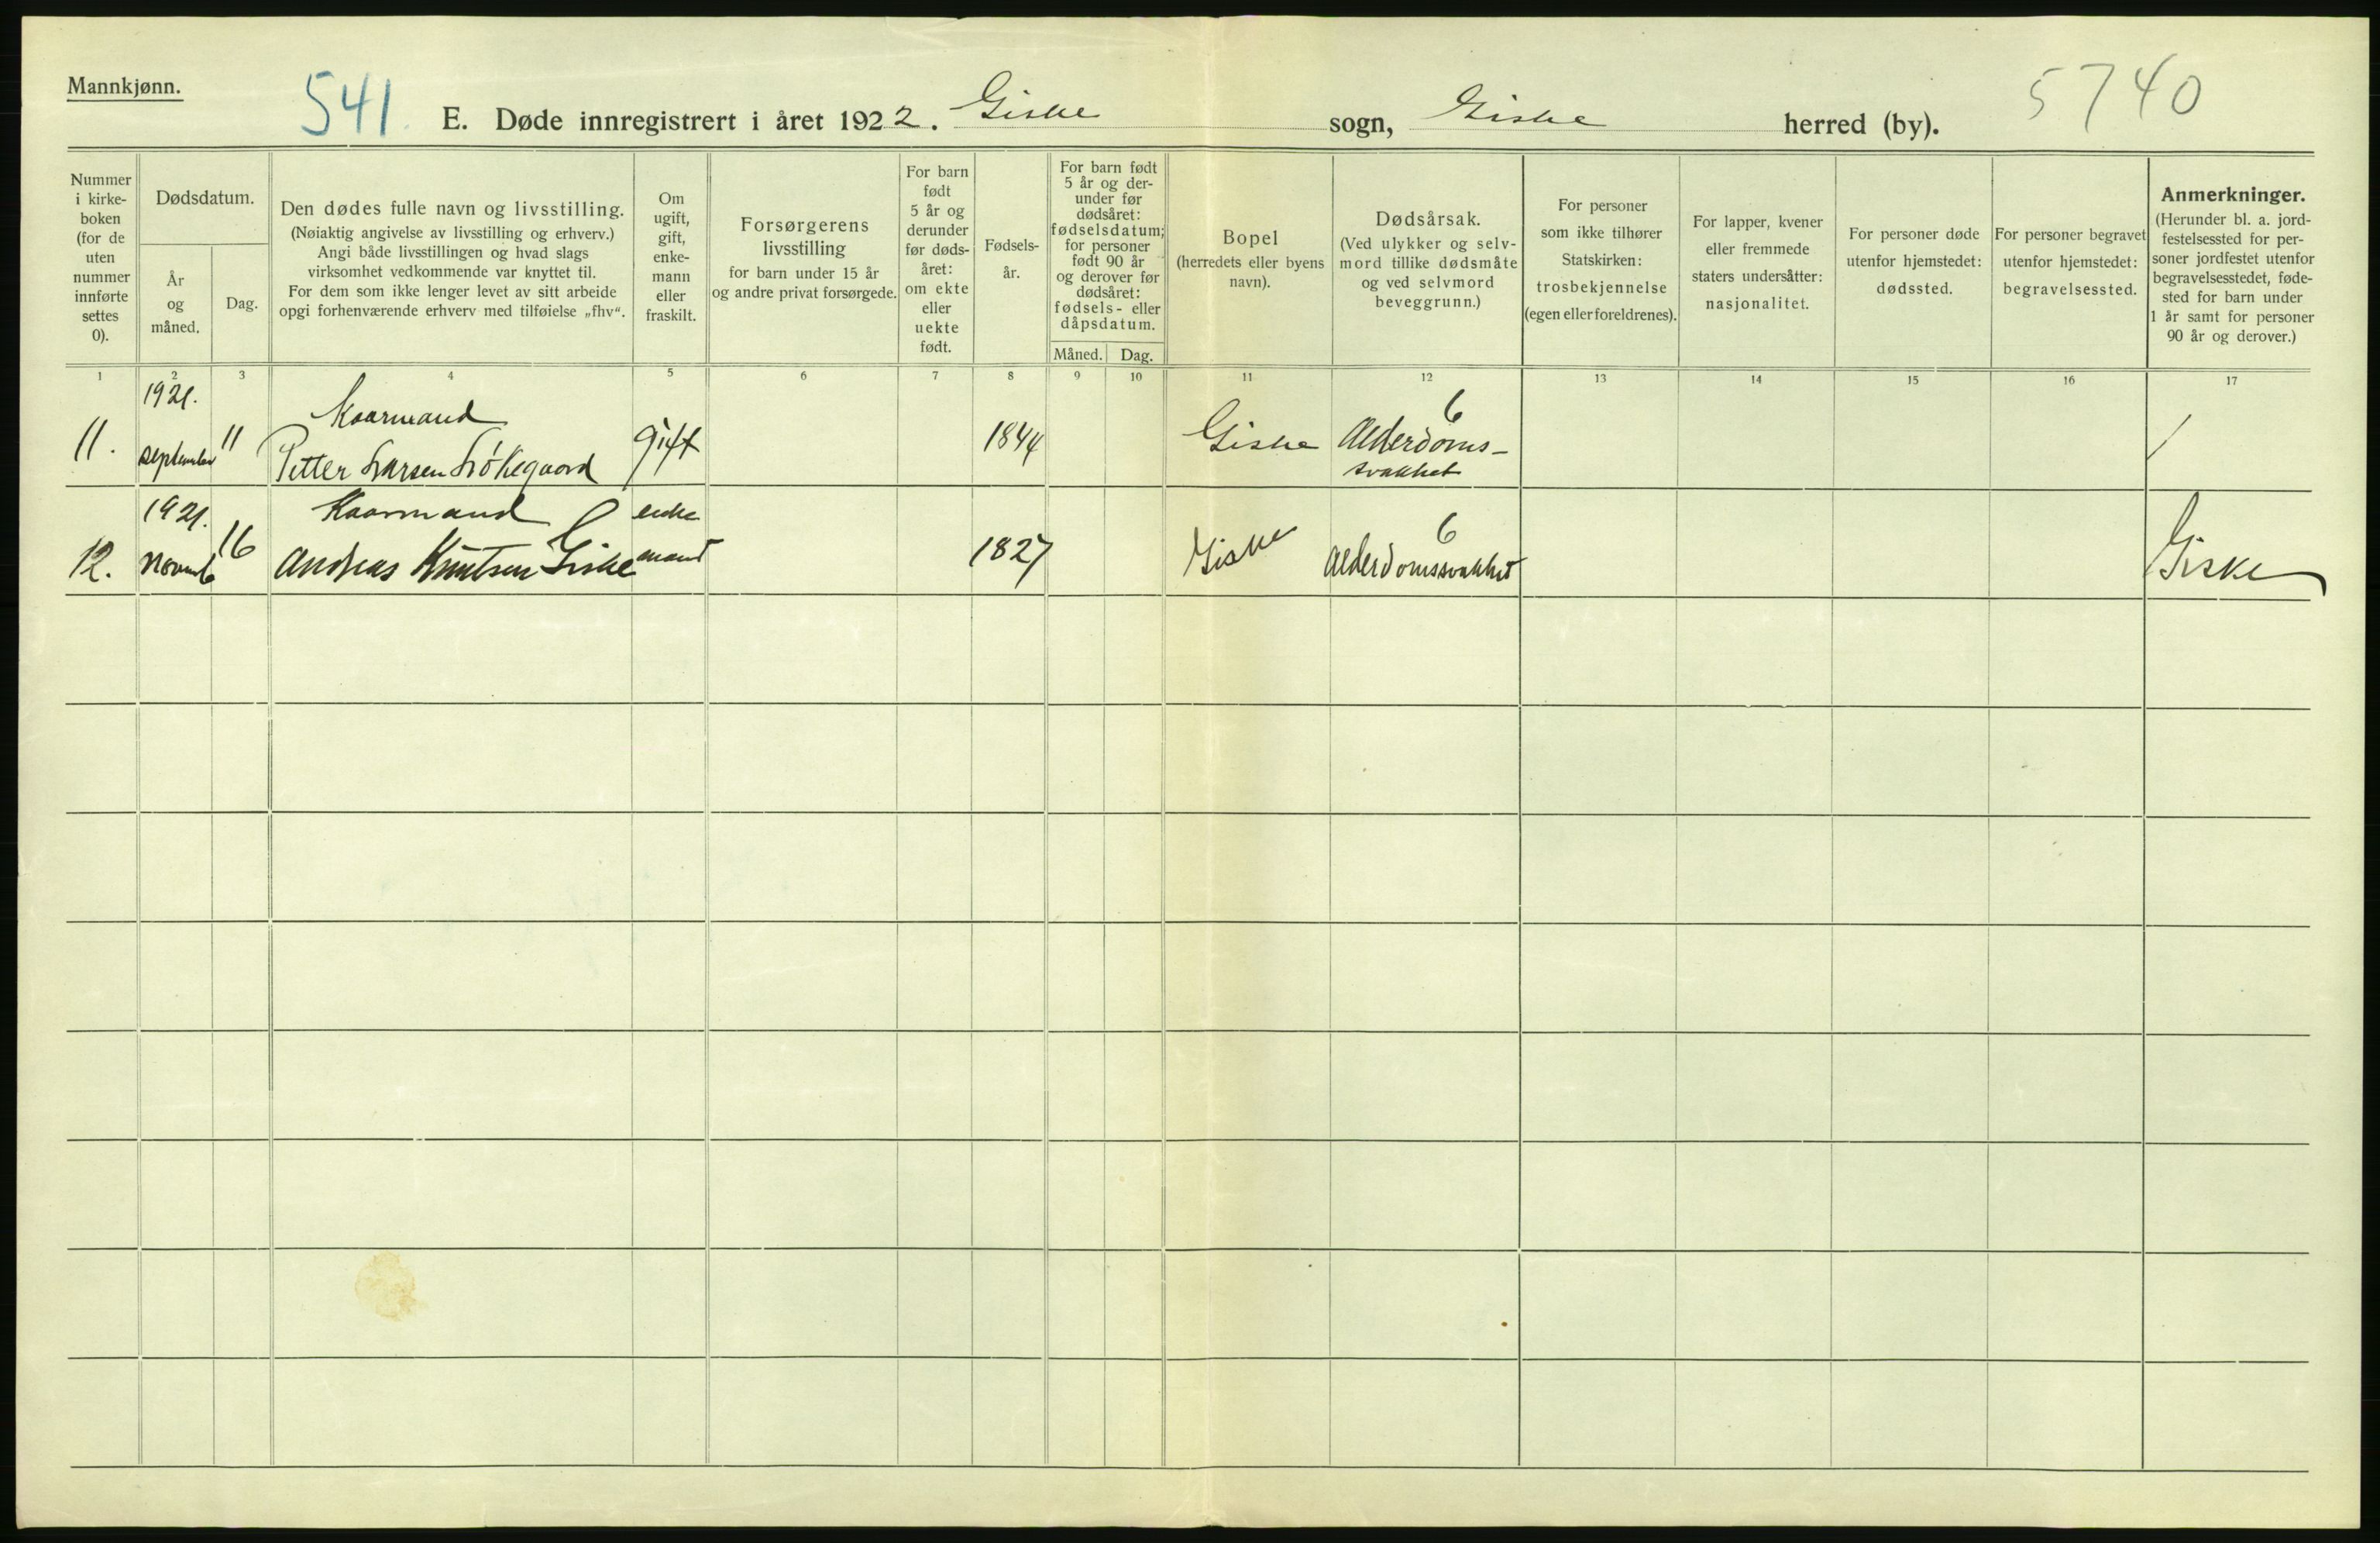 Mannkjønn.
541. E. Døde innregistrert i året 1922. Giske sogn, Giske herred (by). 5740
Nummer i kirke- boken (for de uten nummer innførte settes 0).
Dødsdatum.
År og måned.
Dag.
Den dødes fulle navn og livsstilling.
(Nøiaktig angivelse av livsstilling og erhverv.)
Angi både livsstillingen og hvad slags
virksomhet vedkommende var knyttet til.
For dem som ikke lenger levet av sitt arbeide
opgi forhenværende erhverv med tilføielse „fhv“.
Om ugift, gift, enke- mann eller fraskilt.
Forsørgerens
livsstilling
for barn under 15 år
og andre privat forsørgede.
For barn født 5 år og derunder før døds- året: om ekte eller uekte født.
Fødsels- år.
For barn født 5 år og der- under før dødsåret: fødselsdatum; for personer født 90 år og derover før dødsåret: fødsels- eller dåpsdatum.
Måned. Dag.
Bopel
(herredets eller byens
navn).
Dødsårsak.
(Ved ulykker og selv-
mord tillike dødsmåte
og ved selvmord
beveggrunn.)
For personer
som ikke tilhører
Statskirken:
trosbekjennelse
(egen eller foreldrenes).
For lapper, kvener
eller fremmede
staters undersåtter:
nasjonalitet.
For personer døde
utenfor hjemstedet:
dødssted.
For personer begravet
utenfor hjemstedet:
begravelsessted.
Anmerkninger.
(Herunder bl. a. jord-
festelsessted for per-
soner jordfestet utenfor
begravelsesstedet, føde-
sted for barn under
1 år samt for personer
90 år og derover.)
1 2 3 4 5 6 7 8 9 10 11 12 13 14 15 16 17
1921. Kaarmand 6
11. september 11 Petter Larsen Løkegaard gift 1844 Giske Alderdoms-
svakhet
1921. Kaarmand enke 6
12. Novemb 16 Andreas Knutsen Giske mand 1827 Giske Alderdomssvakhet Giske